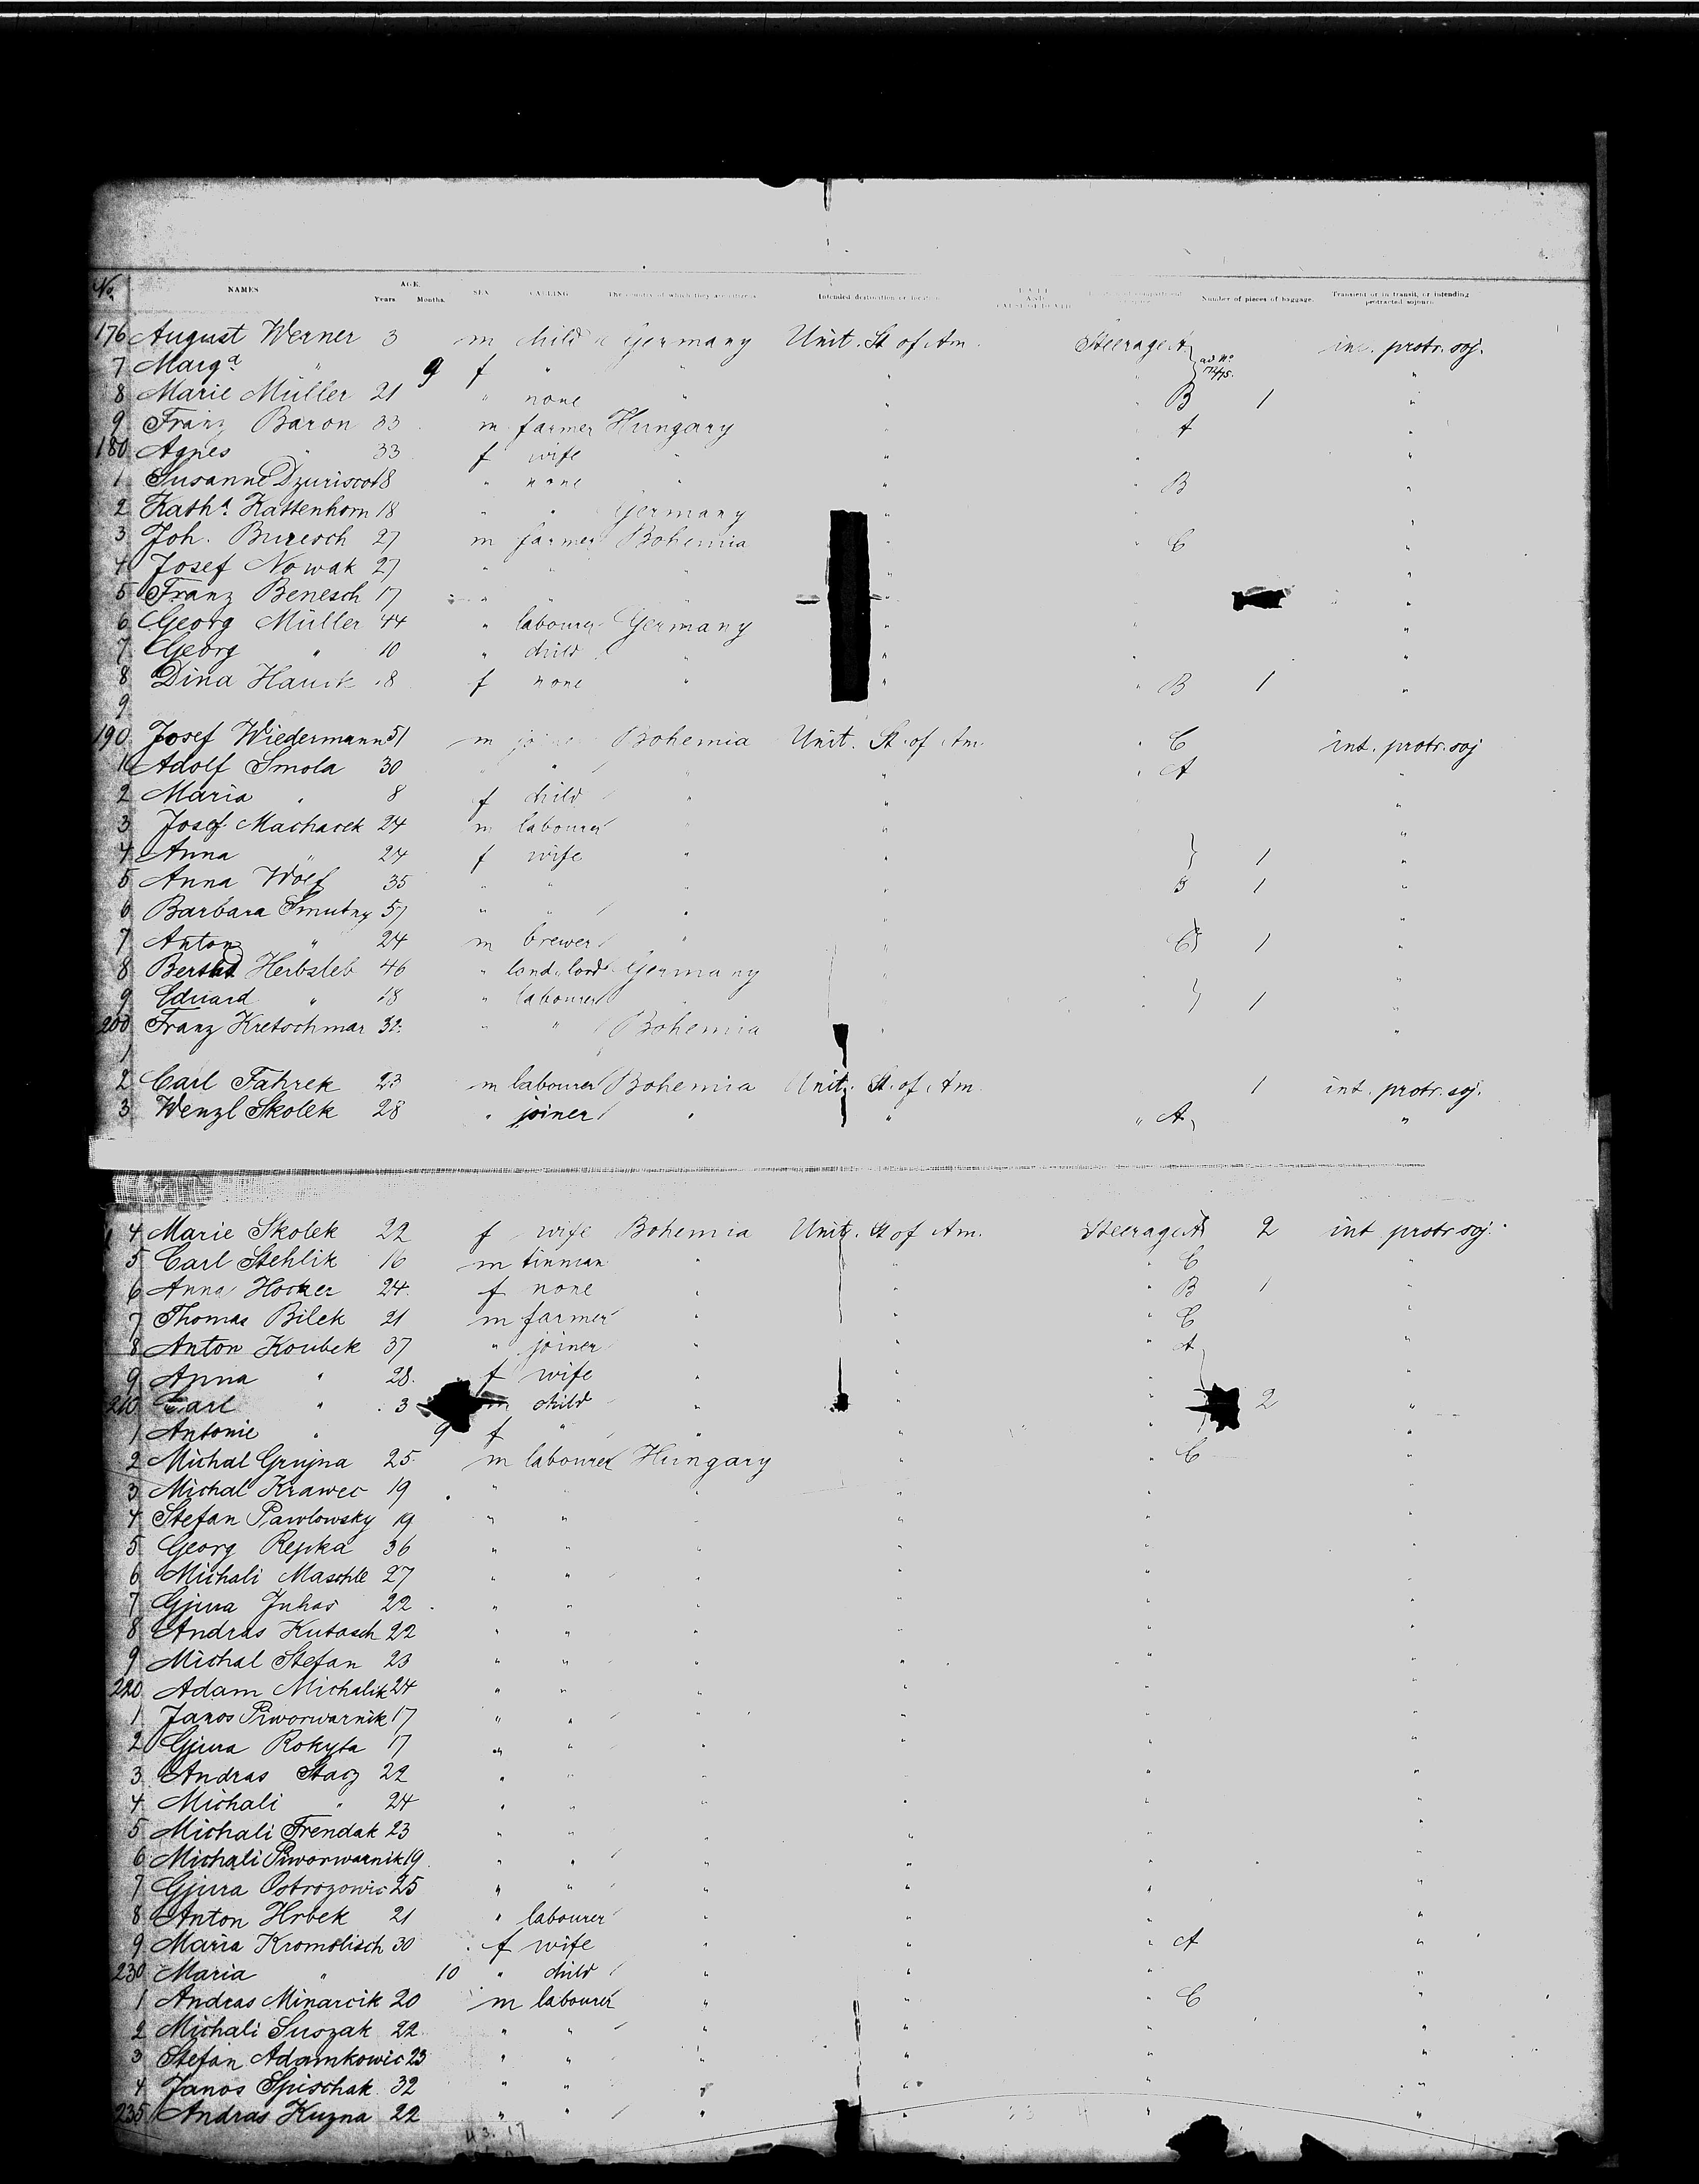 No. NAMES AGE. Years Months. SEX CALLING The country of which they are citizens Intended destination or location DATE AND CAUSE OF DEATH Number of pieces of baggage. Transient or in transit, or intending protracted sojourn
176 August Werner 3 m child Germany Unit. St. of Am. Steerage A int. protr. soj.
7 Marga " 9 f " " " ad No 172/75. "
8 Marie Müller 21 " none " " " B 1 "
9 Franz Baron 33 m farmer Hungary " " A "
180 Agnes " 33 f wife " " " "
1 Susanne 18 " none " " " B "
2 Katha. Kattenhorn 18 " " Germany " "
3 Joh. Buresch 27 m farmer Bohemia " " C "
4 Josef Nowak 27 " " " " "
5 Franz Benesch 17 " " " " "
6 Georg Müller 44 " labourer Germany " " "
7 Georg " 10 " child " " " "
8 Dina Hauck 18 f none " " " B 1 "
9
190 Josef Wiedermann 51 m joiner Bohemia Unit. St. of Am. " C int. protr. soj
1 Adolf Smola 30 " " " " " A "
2 Maria " 8 f child " " "
3 Josef Machacek 24 m labourer " " "
4 Anna " 24 f wife " " 1 "
5 Anna Wolf 35 " " " " B 1 "
6 Barbara Smutny 57 " " " " "
7 Anton " 24 m brewer " " C 1 "
8 Herbsleb 46 " land lord Germany " "
9 Eduard " 18 " labourer " " 1 "
200 Franz Kretschmar 32 " " Bohemia " "
1
2 Carl Fahrek 23 m labourer Bohemia Unit. St. of Am. 1 int. protr. soj.
3 Wenzl Skolek 28 " joiner " " " A "
4 Marie Skolek 22 f wife Bohemia Unit. St of Am. Steerage A 2 int protr soj.
5 Carl Stehlik 16 m tinman " " " C "
6 Anna Hocker 24 f none " " " B 1 "
7 Thomas Bilek 21 m farmer " " " C "
8 Anton Koubek 37 " joiner " " " A "
9 Anna " 28 f wife " " " "
210 Carl " 3 m child " " " 2 "
1 Antonie " 9 f " " " " "
2 Michal Grujna 25 m labourer Hungary " " C "
3 Michal Krawec 19 " " " " " "
4 Stefan Pawlowsky 19 " " " " " "
5 Georg Repka 36 " " " " " "
6 Michali Maschle 27 " " " " " "
7 Gjura Juhas 22 " " " " " "
8 Andras Kutasch 22 " " " " " "
9 Michal Stefan 23 " " " " " "
220 Adam Michalik 24 " " " " " "
1 Janos Piworwarnik 17 " " " " " "
2 Gjura Rokyta 17 " " " " " "
3 Andras Stacz 22 " " " " " "
4 Michali " 24 " " " " " "
5 Michali Frendak 23 " " " " " "
6 Michali Piworwarnik 19 " " " " " "
7 Gjura Ostrozowic 25 " " " " " "
8 Anton Hrbek 21 " labourer " " " "
9 Maria Kromolisch 30 f wife " " " A "
230 Maria " 10 " child " " " "
1 Andras Minarcik 20 m labourer " " " C "
2 Michali Suszak 22 " " " " " "
3 Stefan Adamkowic 23 " " " " " "
4 Janos Spischak 32 " " " " " "
235 Andras Kuzna 22 " " " " " "